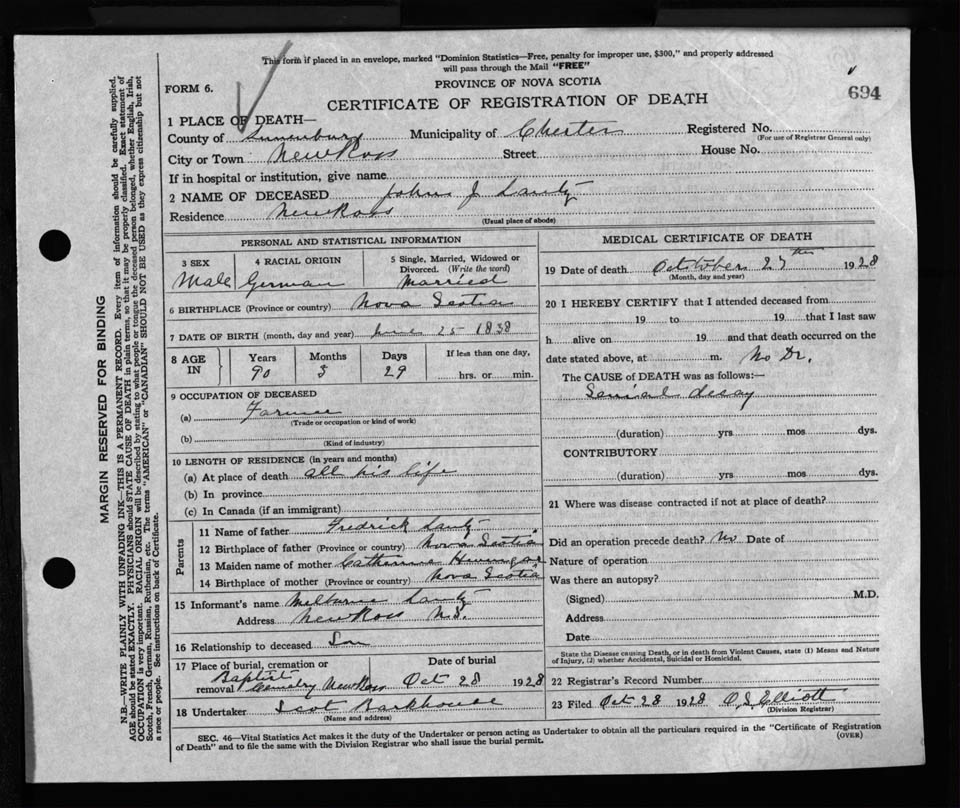 This form if placed in an envelope, marked "Dominion Statistics—Free, penalty for improper use, $300," and properly addressed
will pass through the Mail "FREE"
PROVINCE OF NOVA SCOTIA
FORM 6.
694
CERTIFICATE OF REGISTRATION OF DEATH
1 PLACE OF DEATH—
County of Lunenburg Municipality of Chester Registered No.
(For use of Registrar General only)
City or Town New Ross Street House No.
If in hospital or institution, give name
2 NAME OF DECEASED John J Lantz
Residence New Ross
(Usual place of abode)
PERSONAL AND STATISTICAL INFORMATION
3 SEX 4 RACIAL ORIGIN 5 Single, Married, Widowed or Divorced. (Write the word)
Male German Married
6 BIRTHPLACE (Province or country) Nova Scotia
7 DATE OF BIRTH (month, day and year) June 25 1838
8 AGE IN Years Months Days If less than one day,
90 3 29 hrs. or min.
9 OCCUPATION OF DECEASED
(a) Farmer
(Trade or occupation or kind of work)
(b)
(Kind of industry)
10 LENGTH OF RESIDENCE (in years and months)
(a) At place of death all his life
(b) In province
(c) In Canada (if an immigrant)
Parents
11 Name of father Fredrick Lantz
12 Birthplace of father (Province or country) Nova Scotia
13 Maiden name of mother Catherine
14 Birthplace of mother (Province or country) Nova Scotia
15 Informant's name Melburne Lantz
Address New Ross N.S.
16 Relationship to deceased Son
17 Place of burial, cremation or removal Date of burial
Baptist Cemetry New Ross Oct 28 1928
18 Undertaker Scot Barkhouse
(Name and address)
MEDICAL CERTIFICATE OF DEATH
19 Date of death October 27th 1928
(Month, day and year)
20 I HEREBY CERTIFY that I attended deceased from
19 to 19 that I last saw
h alive on 19 and that death occurred on the
date stated above, at m. No Dr.
The CAUSE of DEATH was as follows:—
Senial decay
(duration) yrs mos dys.
CONTRIBUTORY
(duration) yrs mos dys.
21 Where was disease contracted if not at place of death?
Did an operation precede death? No Date of
Nature of operation
Was there an autopsy?
(Signed) M.D.
Address
Date
State the Disease causing Death, or in death from Violent Causes, state (1) Means and Nature
of Injury, (2) whether Accidental, Suicidal or Homicidal.
22 Registrar's Record Number
23 Filed Oct 28 1928 O.S. Elliott
(Division Registrar)
SEC. 46—Vital Statistics Act makes it the duty of the Undertaker or person acting as Undertaker to obtain all the particulars required in the "Certificate of Registration
of Death" and to file the same with the Division Registrar who shall issue the burial permit. (OVER)
MARGIN RESERVED FOR BINDING
N.B.—WRITE PLAINLY WITH UNFADING INK—THIS IS A PERMANENT RECORD. Every item of information should be carefully supplied.
AGE should be stated EXACTLY. PHYSICIANS should STATE CAUSE OF DEATH in plain terms, so that it may be properly classified. Exact statement of
OCCUPATION is very important. RACIAL ORIGIN will be described by stating to what people or tongue the deceased person belonged, whether English, Irish,
Scotch, French, German, Russian, Ruthenian, etc. The terms "AMERICAN" or "CANADIAN" SHOULD NOT BE USED as they express citizenship but not
a race or people. See instructions on back of Certificate.